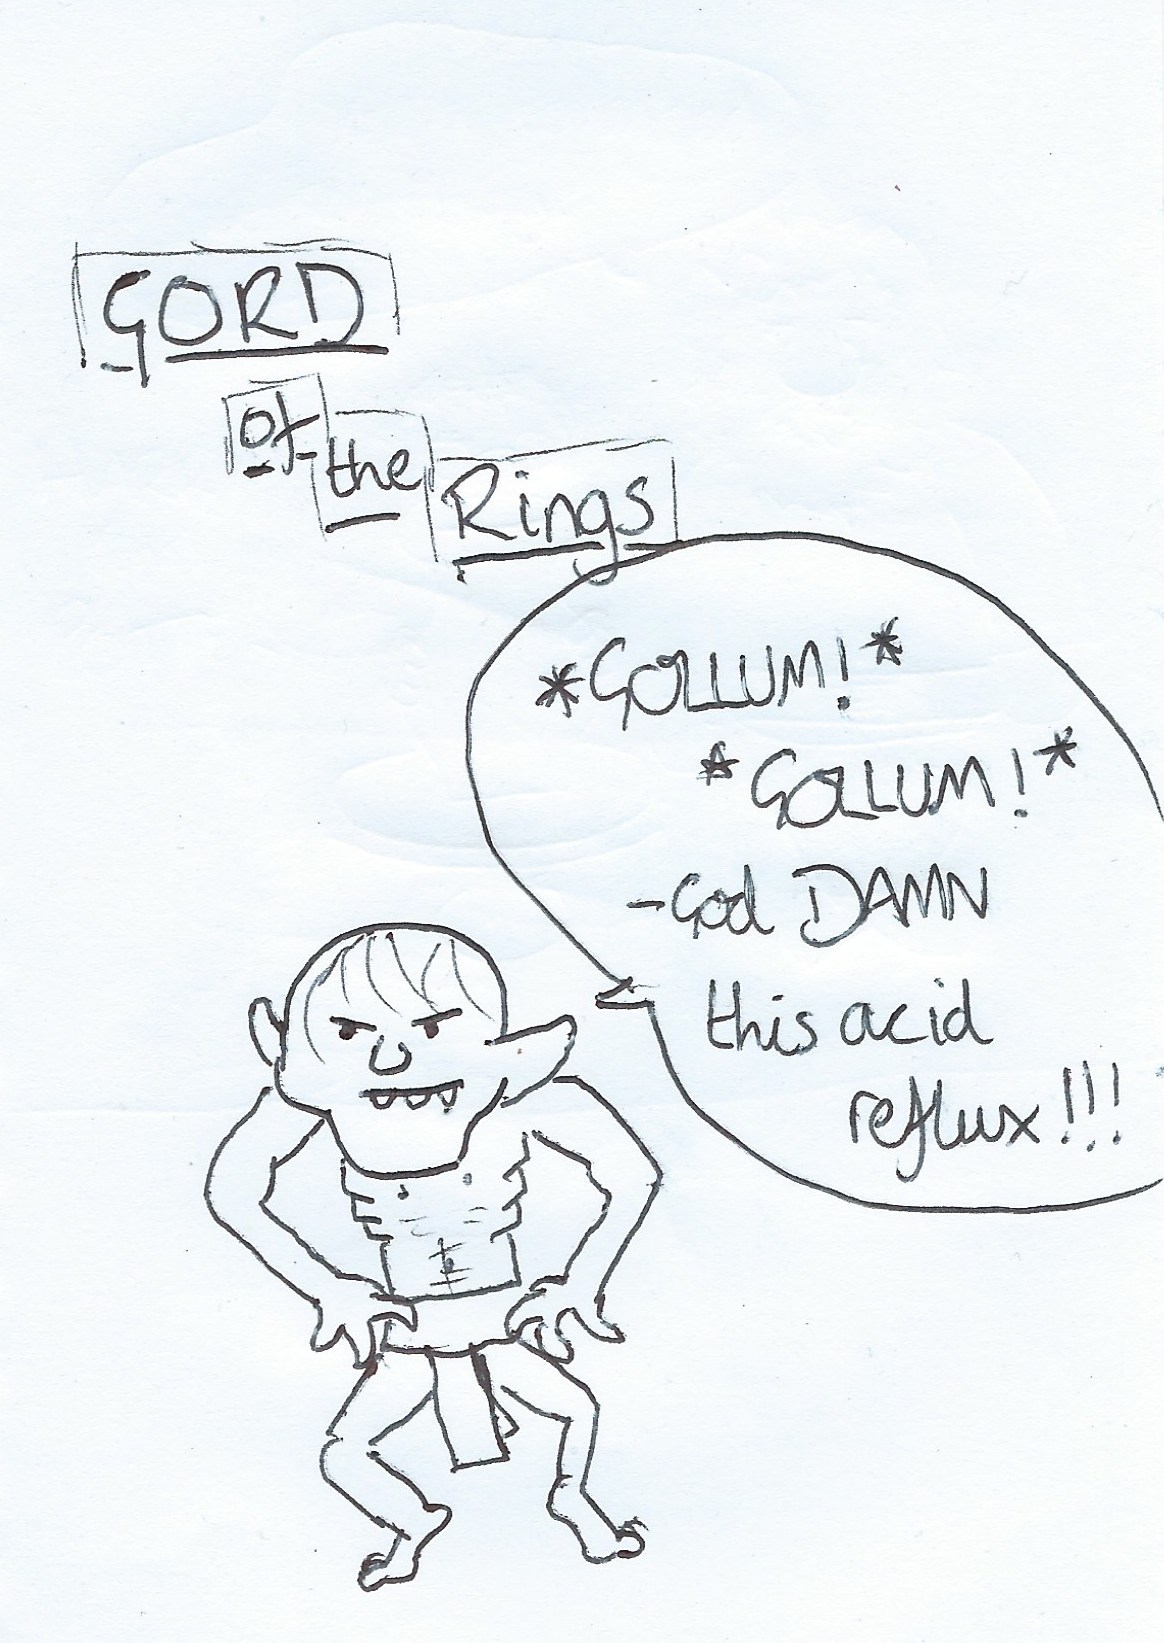 GORD
of the
Rings
*GOLLUM!*
*GOLLUM!*
-God DAMN
this acid
reflux!!!